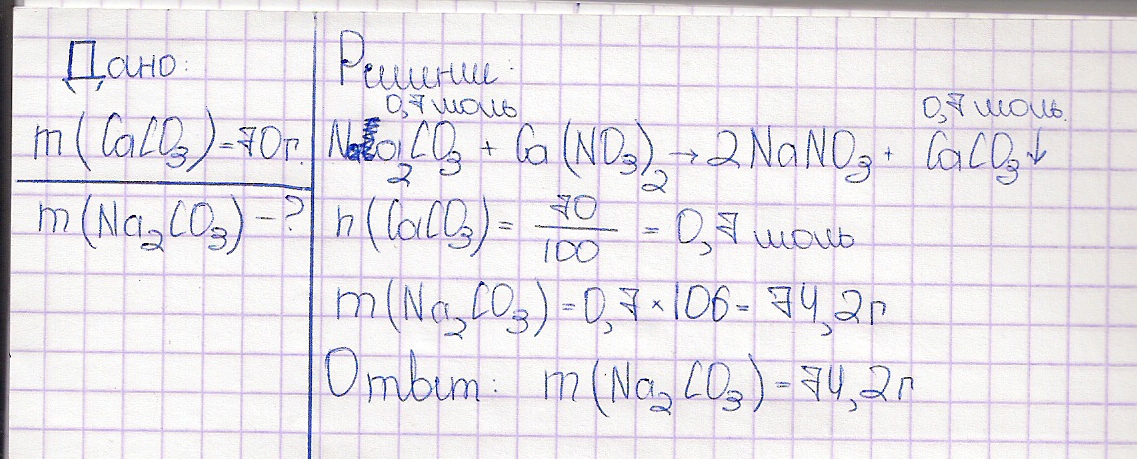 Дано:
m(CaCO₃)=70г.
m(Na₂CO₃)-?
Решение:
0,7 моль 0,7 моль.
Na₂CO₃ + Ca(NO₃)₂ → 2NaNO₃ + CaCO₃↓
n(CaCO₃) = 70/100 = 0,7 моль
m(Na₂CO₃)=0,7×106=74,2г
Ответ: m(Na₂CO₃)=74,2г